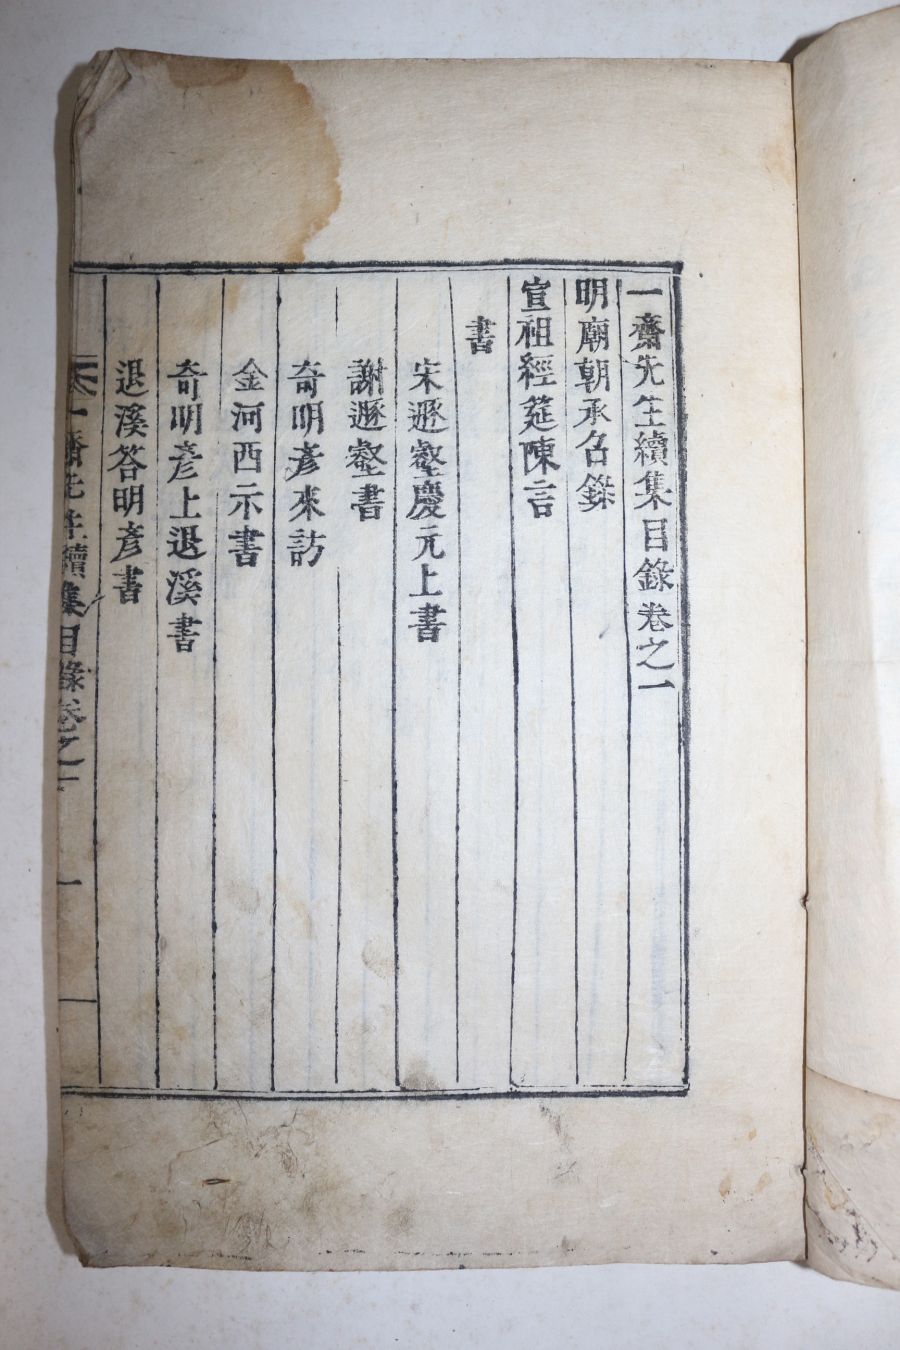 一齋先生續集目錄卷之一
明廟朝承召錄
宣祖經筵陳言
書
宋遯壑慶元上書
謝遯壑書
奇明彥來訪
金河西示書
奇明彥上退溪書
退溪答明彥書
一齋先生續集目錄卷之一 一